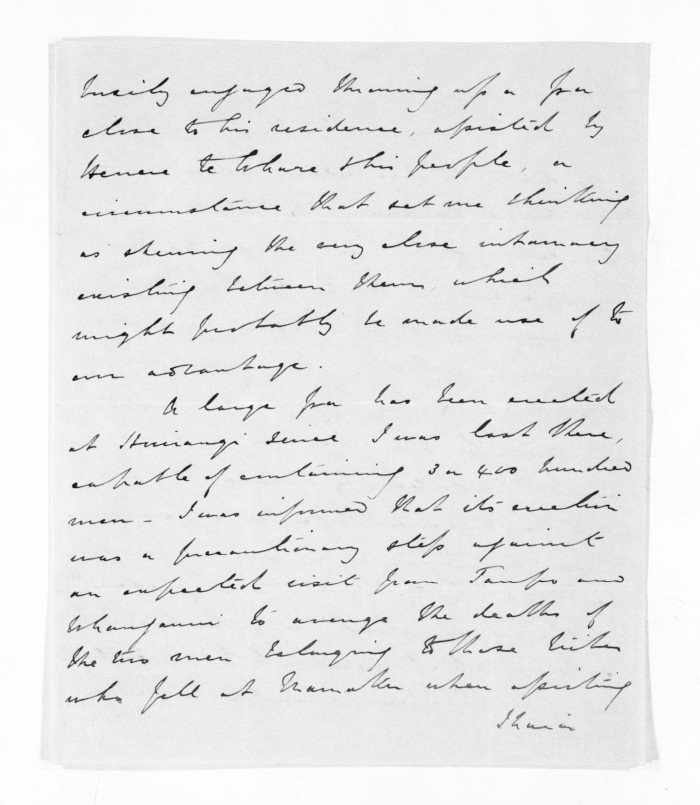 busily engaged throwing up a pa
close to his residence, assisted by
Henere te Whare & his people, a
circumstance that set me thinking
as shewing the very close intimacy
existing between them, which
might probably be made use of to
our advantage.
A large pa has been erected
at Huirangi since I was last there,
capable of containing 3 or 400 hundred
men - I was informed that its erection
was a precautionary step against
an expected visit from Taupo and
Whanganui to avenge the deaths of
the two men belonging to those tribes
who fell at when assisting
Ihaia